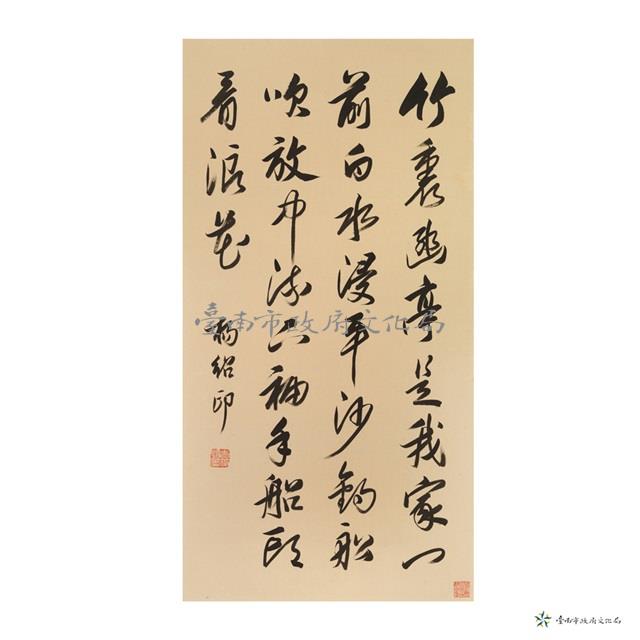 竹裏幽亭是我家門
前白水浸平沙釣船
吹放中流袖手船頭
看浪花
楊紹印
臺南市政府文化局
臺南市政府文化局